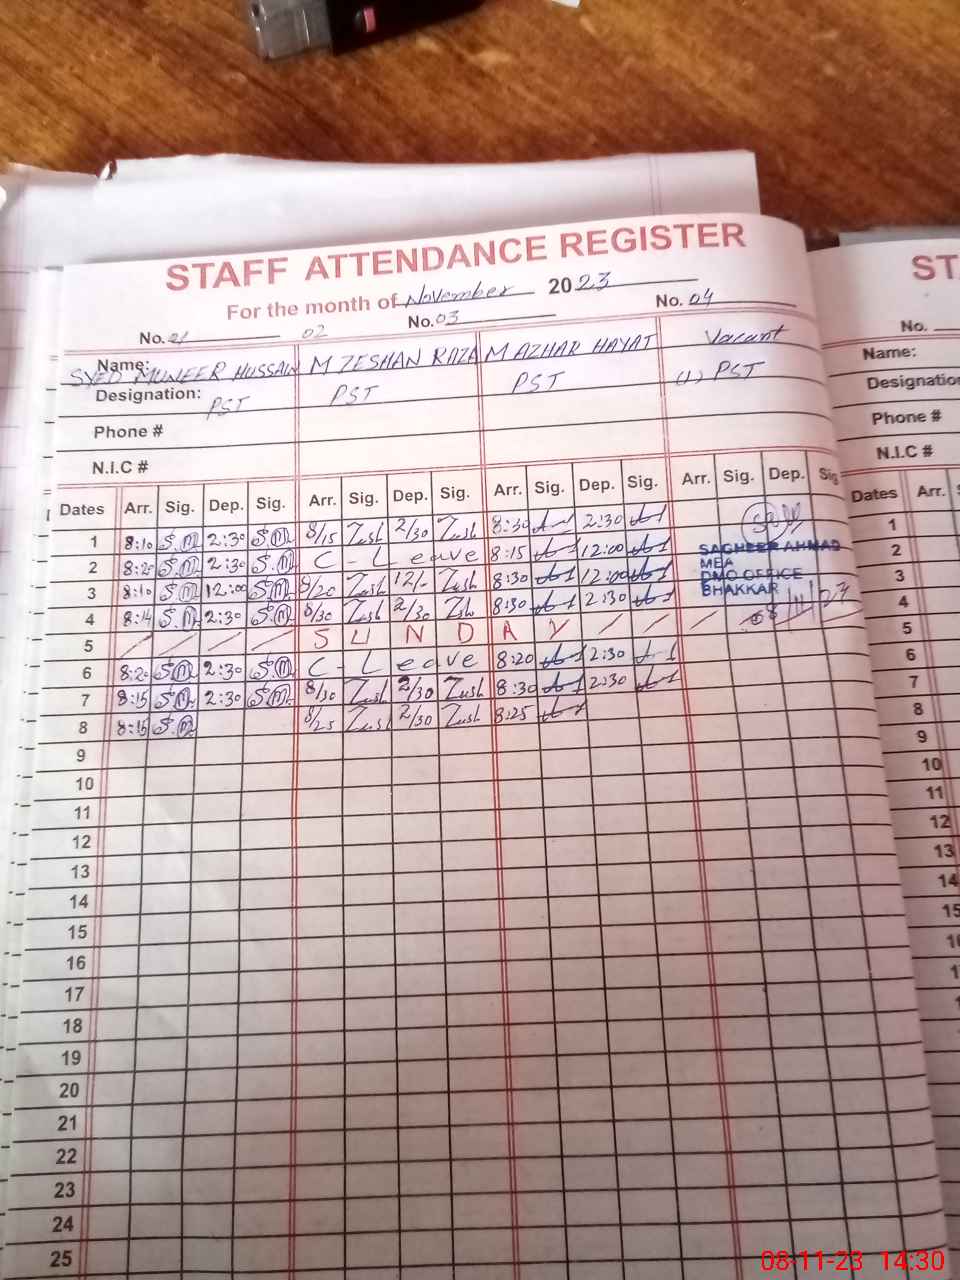 STAFF ATTENDANCE REGISTER
For the month of November 2023
No. 01 02 No. 03 No. 04
Name: SYED MUNEER HUSSAIN M ZESHAN RAZA M AZHAR HAYAT Vacant
Designation: PST PST PST (1) PST
Phone #
N.I.C #
Dates Arr. Sig. Dep. Sig. Arr. Sig. Dep. Sig. Arr. Sig. Dep. Sig. Arr. Sig. Dep. Sig
1 8:10 S.M 2:30 S.M 8/15 Zush 2/30 Zush 8:30 2:30
2 8:20 S.M 2:30 S.M C - Leave 8:15 12:00
3 8:10 S.M 12:00 S.M 8/20 Zush 12/- Zush 8:30 12:00
4 8:14 S.M 2:30 S.M 8/30 Zush 2/30 Zsh 8:30 2:30
SAGHEER AHMAD
MEA
DMO OFFICE
BHAKKAR
5 / / / / S U N D A Y / / / / /
6 8:20 S.M 2:30 S.M C - Leave 8:20 2:30
7 8:15 S.M 2:30 S.M 8/30 Zush 2/30 Zush 8:30 2:30
8 8:15 S.M 8/25 Zush 2/30 Zush 8:25
9
10
11
12
13
14
15
16
17
18
19
20
21
22
23
24
25
ST
No.
Name:
Designatio
Phone #
N.I.C #
Dates Arr. S
1
2
3
4
5
6
7
8
9
10
11
12
13
14
15
08-11-23 14:30